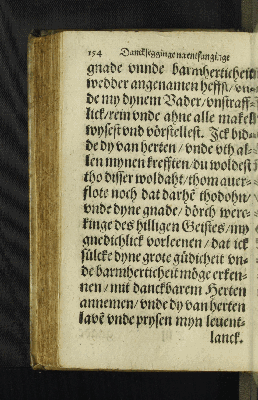 154 Dancksegginge na entfanginge
gnade vnnde barmherticheit
wedder angenamen heffst / vn-
de my dynem Vader / vnstraff-
lick / rein vnde ahne alle makel
wysest vnd vörstellest. Jck bid-
de dy van herten / vnde vth al-
len mynen krefften / du woldest
tho disser woldaht / thom auer-
flote noch dat darhē thodohn /
vnde dyne gnade / dörch werc-
kinge des hilligen Geistes / my
gnedichlick vorleenen / dat ick
sülcke dyne grote güdicheit vn-
de barmherticheit möge erken-
nen / mit danckbarem Herten
annemen / vnde dy van herten
lavē vnde prysen myn leuent-
lanck.